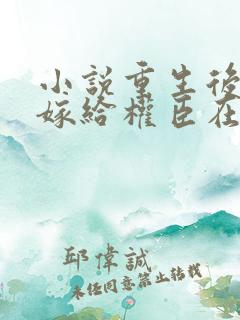 小說重生後
嫁給權臣在
邱偉誠
未经同意禁止转载